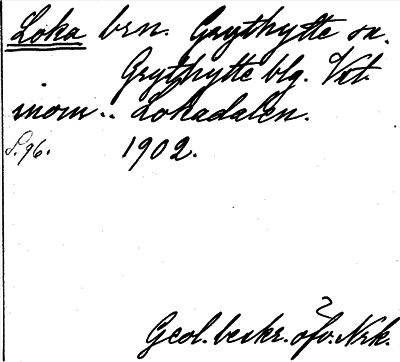 Loka brn. Grythytte sn.
Grythytte blg. Vst
inom.. Lokadalen.
S. 96. 1902.
Geol. beskr. öfv. Nrk.